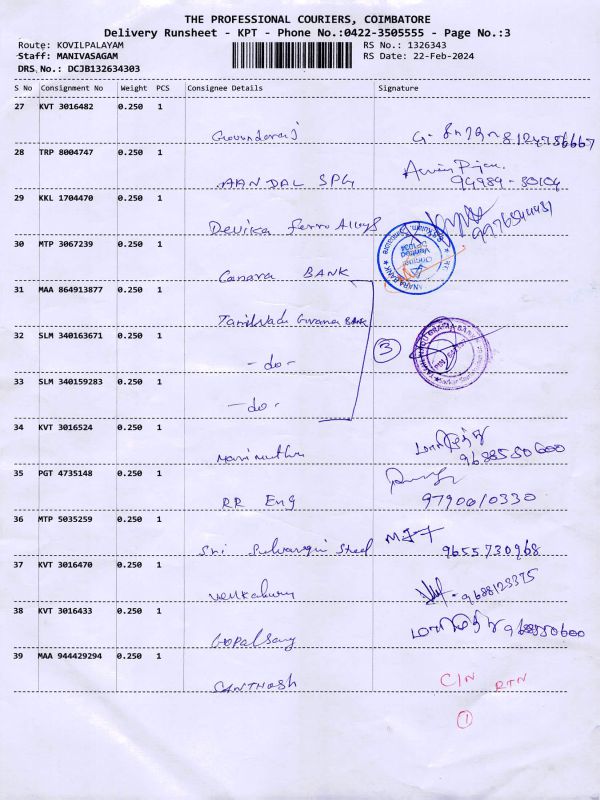 THE PROFESSIONAL COURIERS, COIMBATORE
Delivery Runsheet - KPT - Phone No.:0422-3505555 - Page No.:3
Route: KOVILPALAYAM RS No.: 1326343
Staff: MANIVASAGAM RS Date: 22-Feb-2024
DRS No.: DCJB132634303
S No Consignment No Weight PCS Consignee Details Signature
27 KVT 3016482 0.250 1
28 TRP 8004747 0.250 1
AANDAL SPG
29 KKL 1704470 0.250 1
Devika Ferro Alloys
30 MTP 3067239 0.250 1
Canara BANK
31 MAA 864913877 0.250 1
Tamilnadu Grama BANK
32 SLM 340163671 0.250 1
-do- 3
33 SLM 340159283 0.250 1
-do-
34 KVT 3016524 0.250 1
மாரிமுத்து
9688550600
35 PGT 4735148 0.250 1
RR Eng 9790010330
36 MTP 5035259 0.250 1
Sri Steel 9655730968
37 KVT 3016470 0.250 1
9688123375
38 KVT 3016433 0.250 1
Gopalsamy மாரிமுத்து 9688550600
39 MAA 944429294 0.250 1
SANTHOSH C/N RTN
1